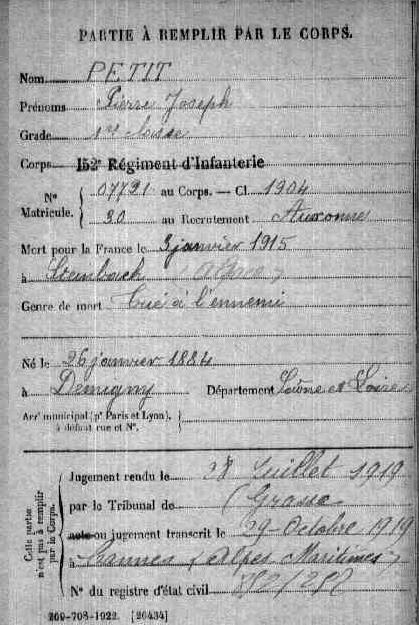 PARTIE À REMPLIR PAR LE CORPS.
Nom PETIT
Prénoms Pierre Joseph
Grade 1re classe
Corps 152e Régiment d'Infanterie
No Matricule. 07791 au Corps. — Cl. 1904
30 au Recrutement Auxonne
Mort pour la France le 3 janvier 1915
à Steinbach (Alsace)
Genre de mort tué à l'ennemi
Né le 26 janvier 1884
à Demigny Département Saône et Loire
Arrt municipal (pr Paris et Lyon), à défaut rue et No.
Cette partie n'est pas à remplir par le Corps.
Jugement rendu le 28 Juillet 1919
par le Tribunal de Grasse
acte ou jugement transcrit le 29 Octobre 1919
à Cannes (Alpes Maritimes)
No du registre d'état civil
269-708-1922. [26434]